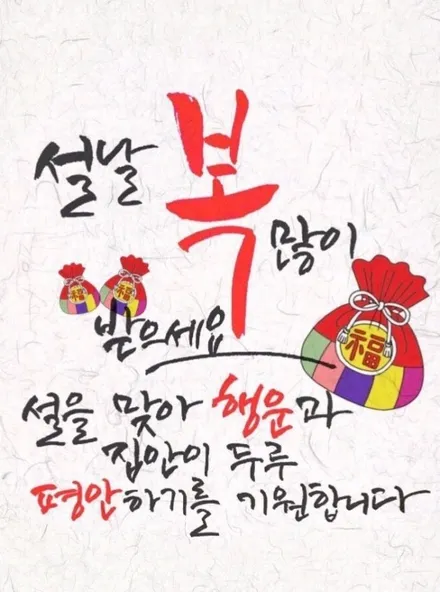 설날 복 많이
받으세요
설을 맞아 행운과
집안이 두루
평안하기를 기원합니다
福
福
福